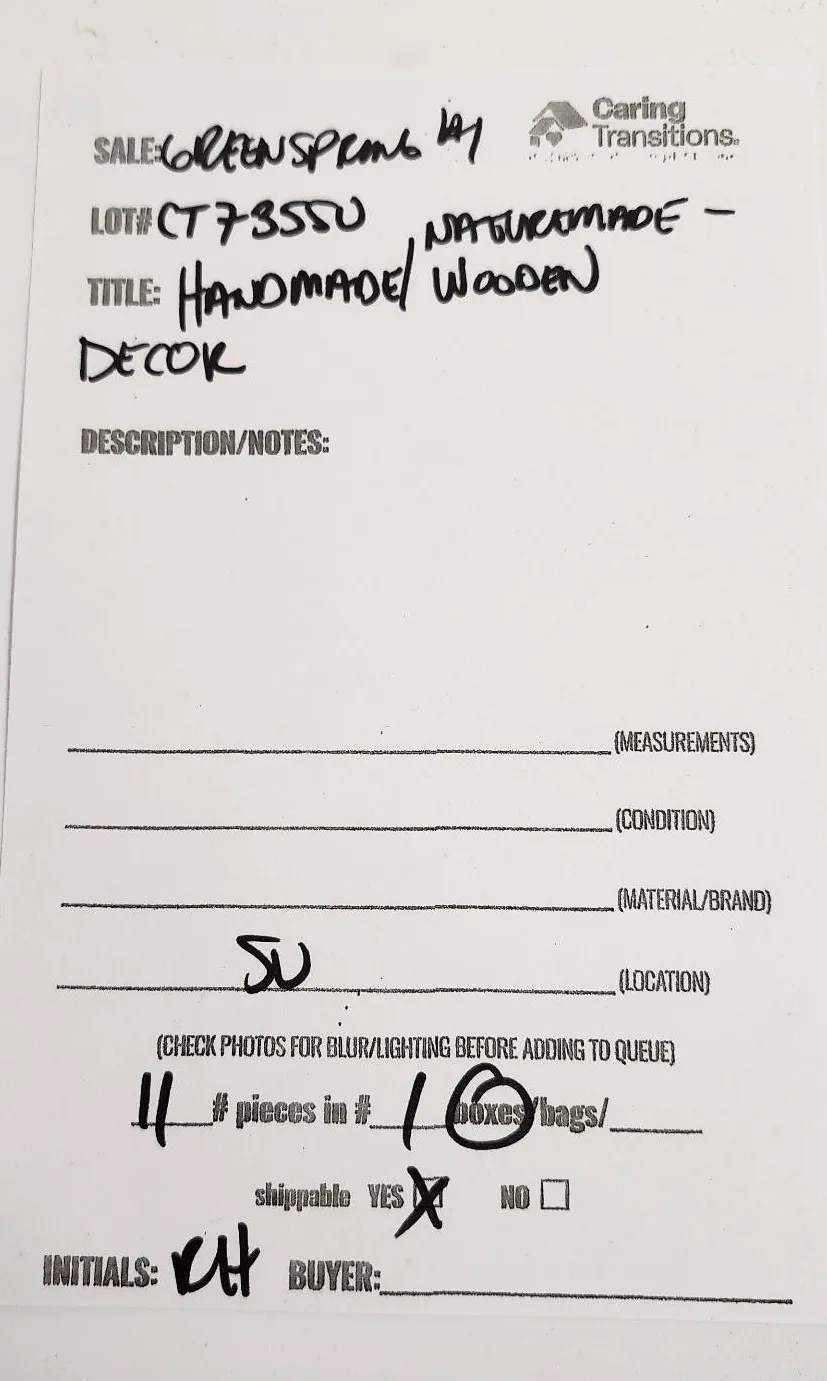 Caring
Transitions.
SALE: GREENSPRING
LOT# CT73550
NATUREMADE -
TITLE: HANDMADE/ WOODEN
DECOR
DESCRIPTION/NOTES:
(MEASUREMENTS)
(CONDITION)
(MATERIAL/BRAND)
SU (LOCATION)
(CHECK PHOTOS FOR BLUR/LIGHTING BEFORE ADDING TO QUEUE)
11 # pieces in # 1 boxes/bags/
shippable YES X NO
INITIALS: RH BUYER: